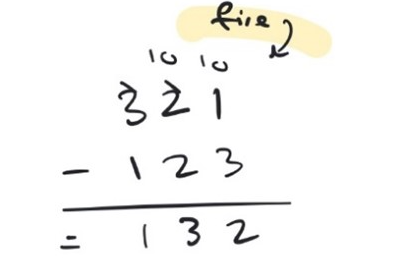 five
10 10
3 2 1
- 1 2 3
= 1 3 2